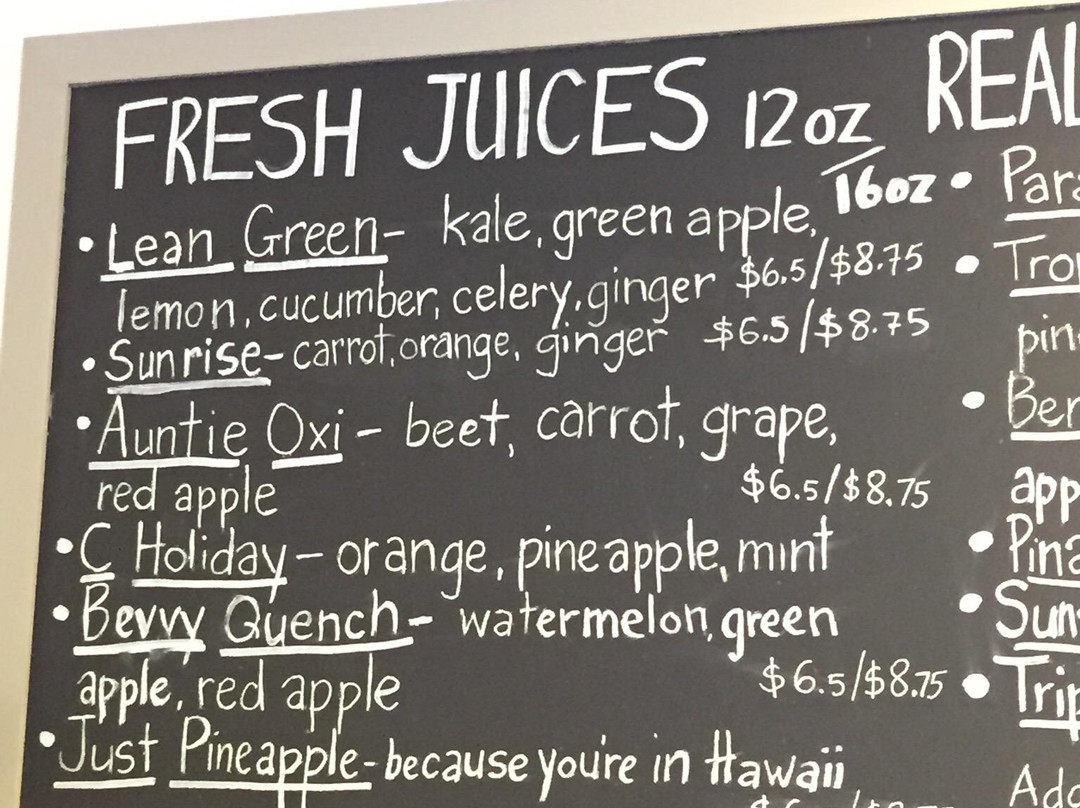 FRESH JUICES 12oz
/16oz
• Lean Green- kale, green apple,
lemon, cucumber, celery, ginger $6.5/$8.75
• Sunrise- carrot, orange, ginger $6.5/$8.75
• Auntie Oxi - beet, carrot, grape,
red apple $6.5/$8.75
• C Holiday - orange, pineapple, mint
• Bevvy Quench- watermelon, green
apple, red apple $6.5/$8.75
• Just Pineapple- because you're in Hawaii
REAL